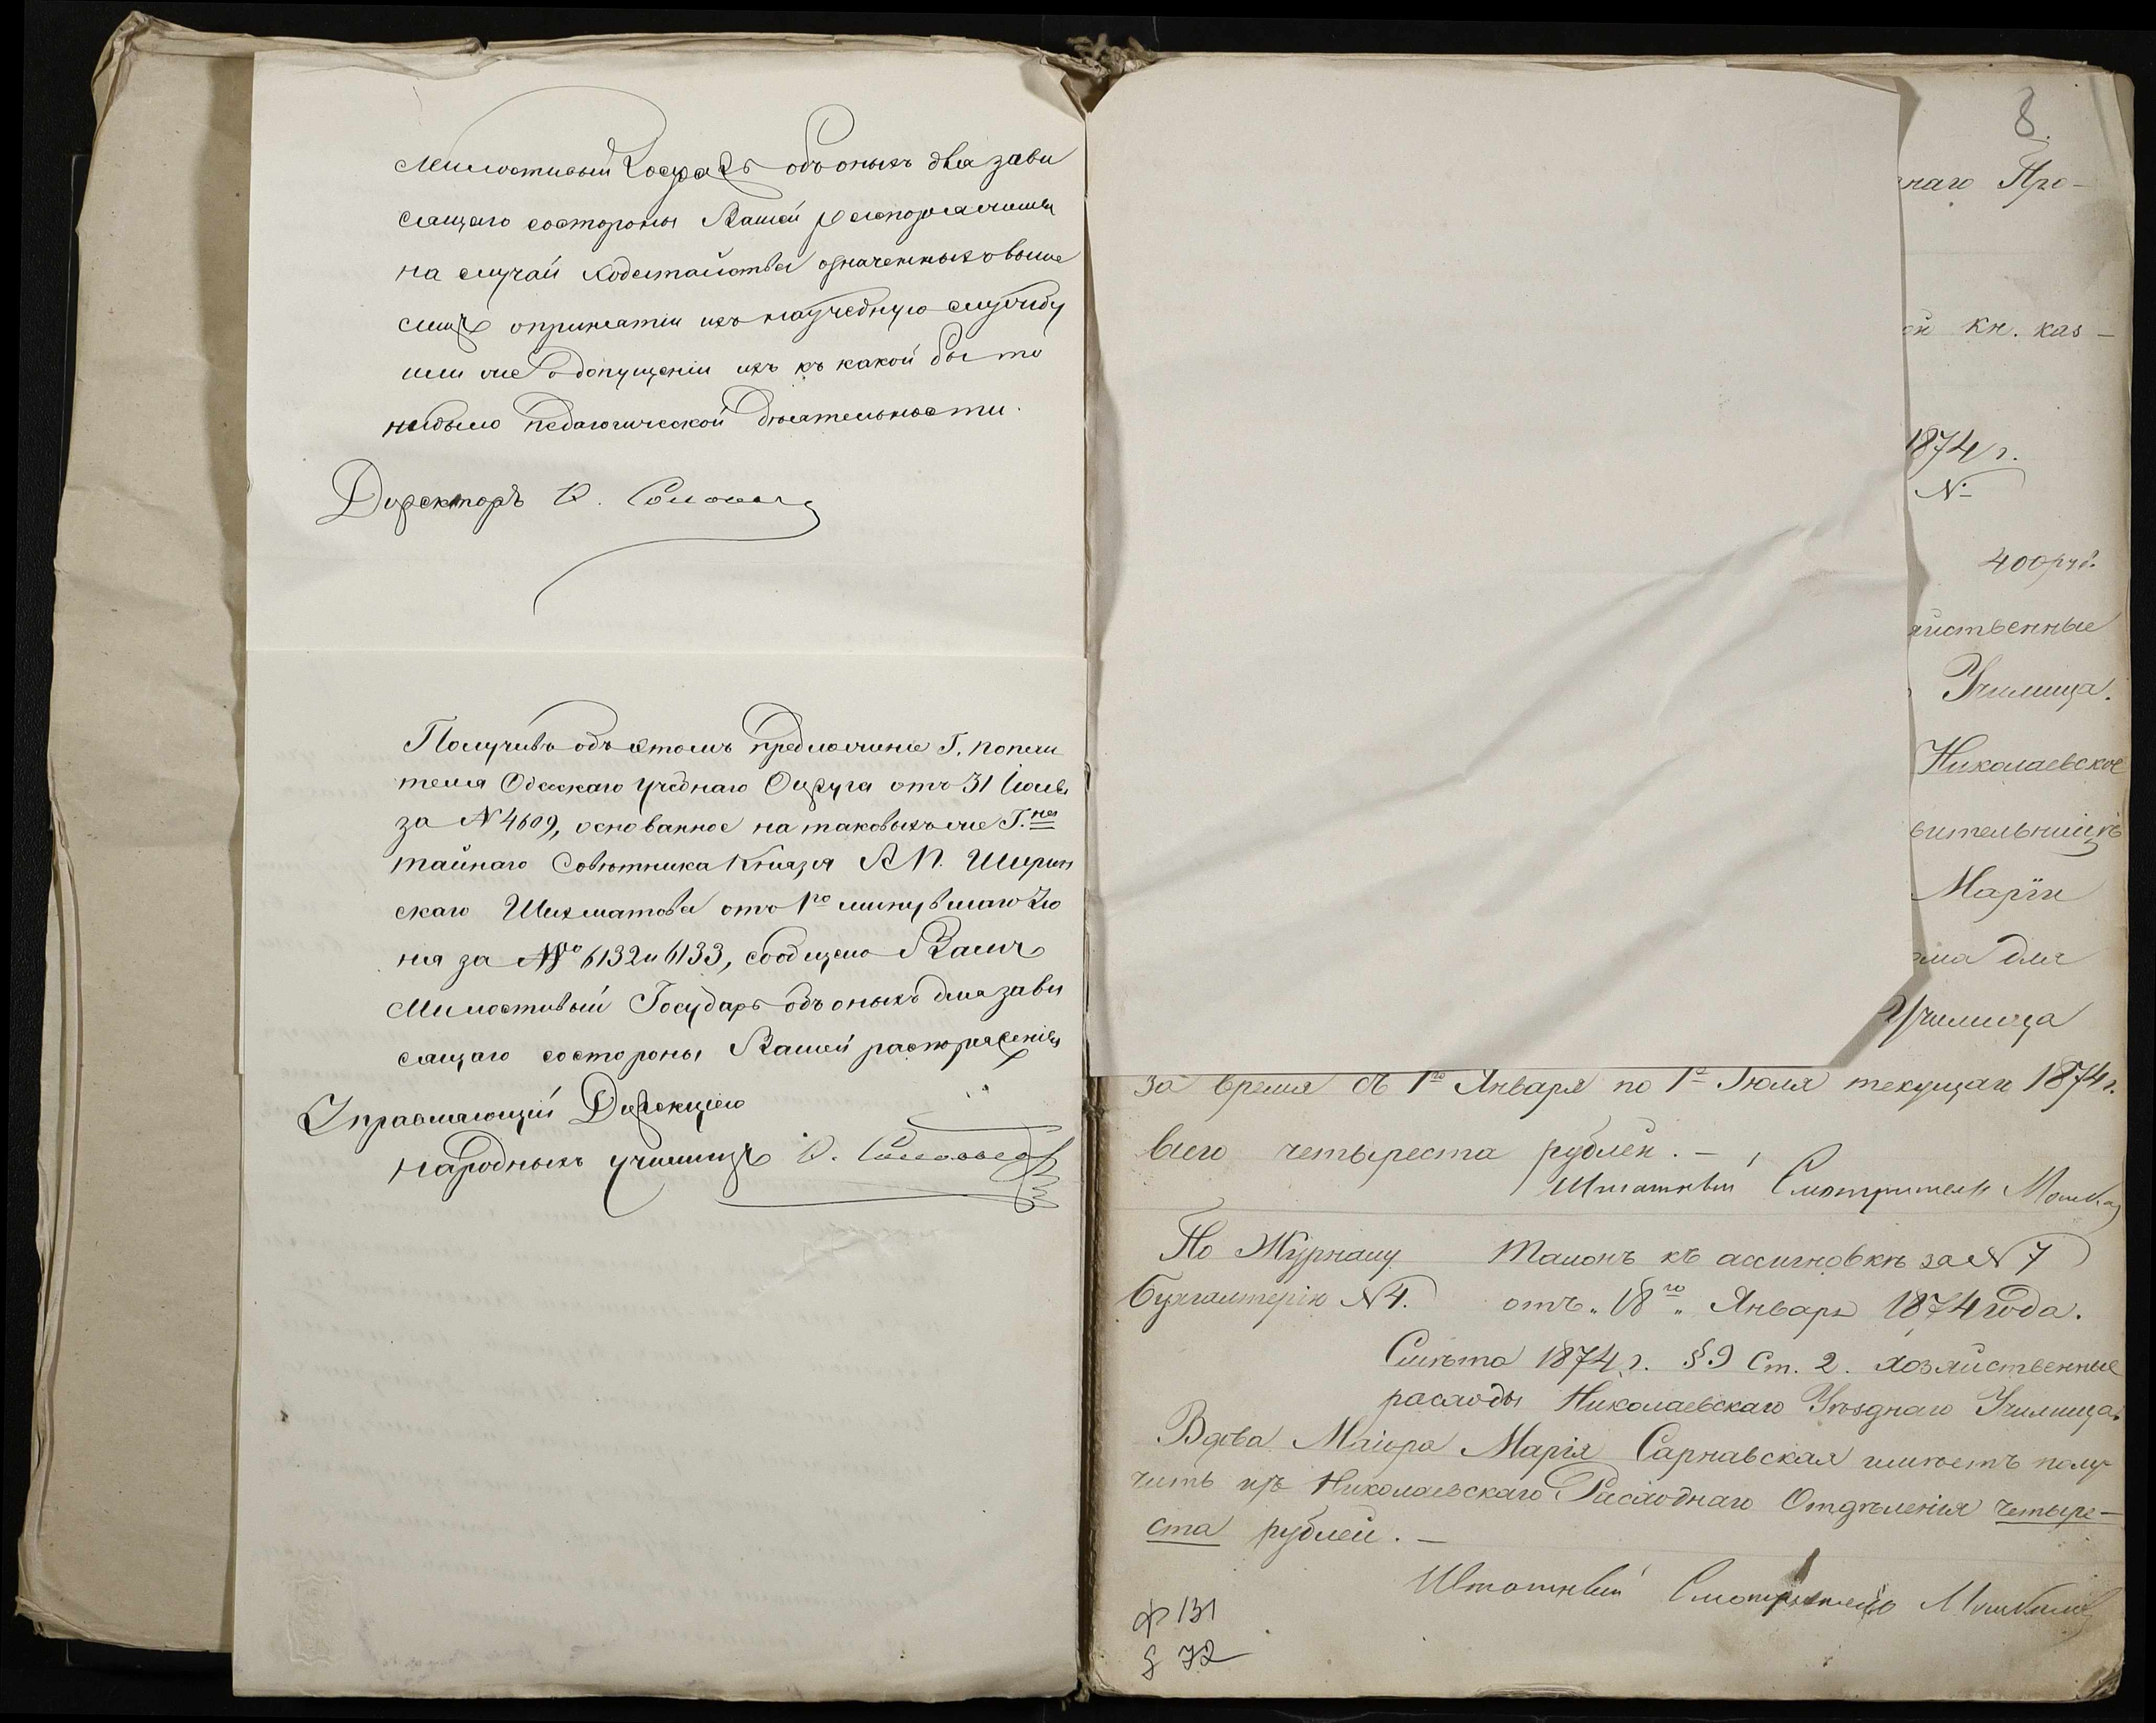 Милостивый Государь объ оныхъ для зави
сящаго состороны Вашей распоряженія
на случай ходатайства означенныхъ выше
лицъ опринятіи ихъ на учебную службу
или же о допущеніи ихъ къ какой бы то
нибыло педагогической дѣятельности.
Директоръ
Получивъ объ этомъ предложеніе Г. Попечи
теля Одесскаго учебнаго Округа отъ 31 Іюля
за № 4609, основанное на таковыхъ же Г.на
тайнаго Совѣтника Князя А П. Ширин
скаго Шихматова отъ 1го минувшаго Ію
ня за №№ 6132 и 6133, сообщено Вамъ
Милостивый Государь объ оныхъ для зави
сящаго состороны Вашей распоряженія
Управляющій Дирекціею
народныхъ училищъ
8.
наго Про-
кн. каз-
1874 г.
№
400 руб.
яйственные
Училища.
Николаевское
вительницѣ
Маріи
ма для
Училища
за время съ 1го Января по 1е Іюля текущаго 1874 г.
всего четыреста рублей. —
Штатный Смотритель
По Журналу Талонъ къ ассигновкѣ за № 7
Бухгалтеріи № 4. отъ „18го„ Января 1874 года.
Смѣта 1874 г. § 9 Ст. 2. Хозяйственные
расходы Николаевскаго Уѣзднаго Училища.
Вдова Маіора Марія Сарнавская имѣетъ полу-
чить изъ Николаевскаго Расходнаго Отдѣленія четыре-
ста рублей. —
Штатный Смотритель
ф 131
72